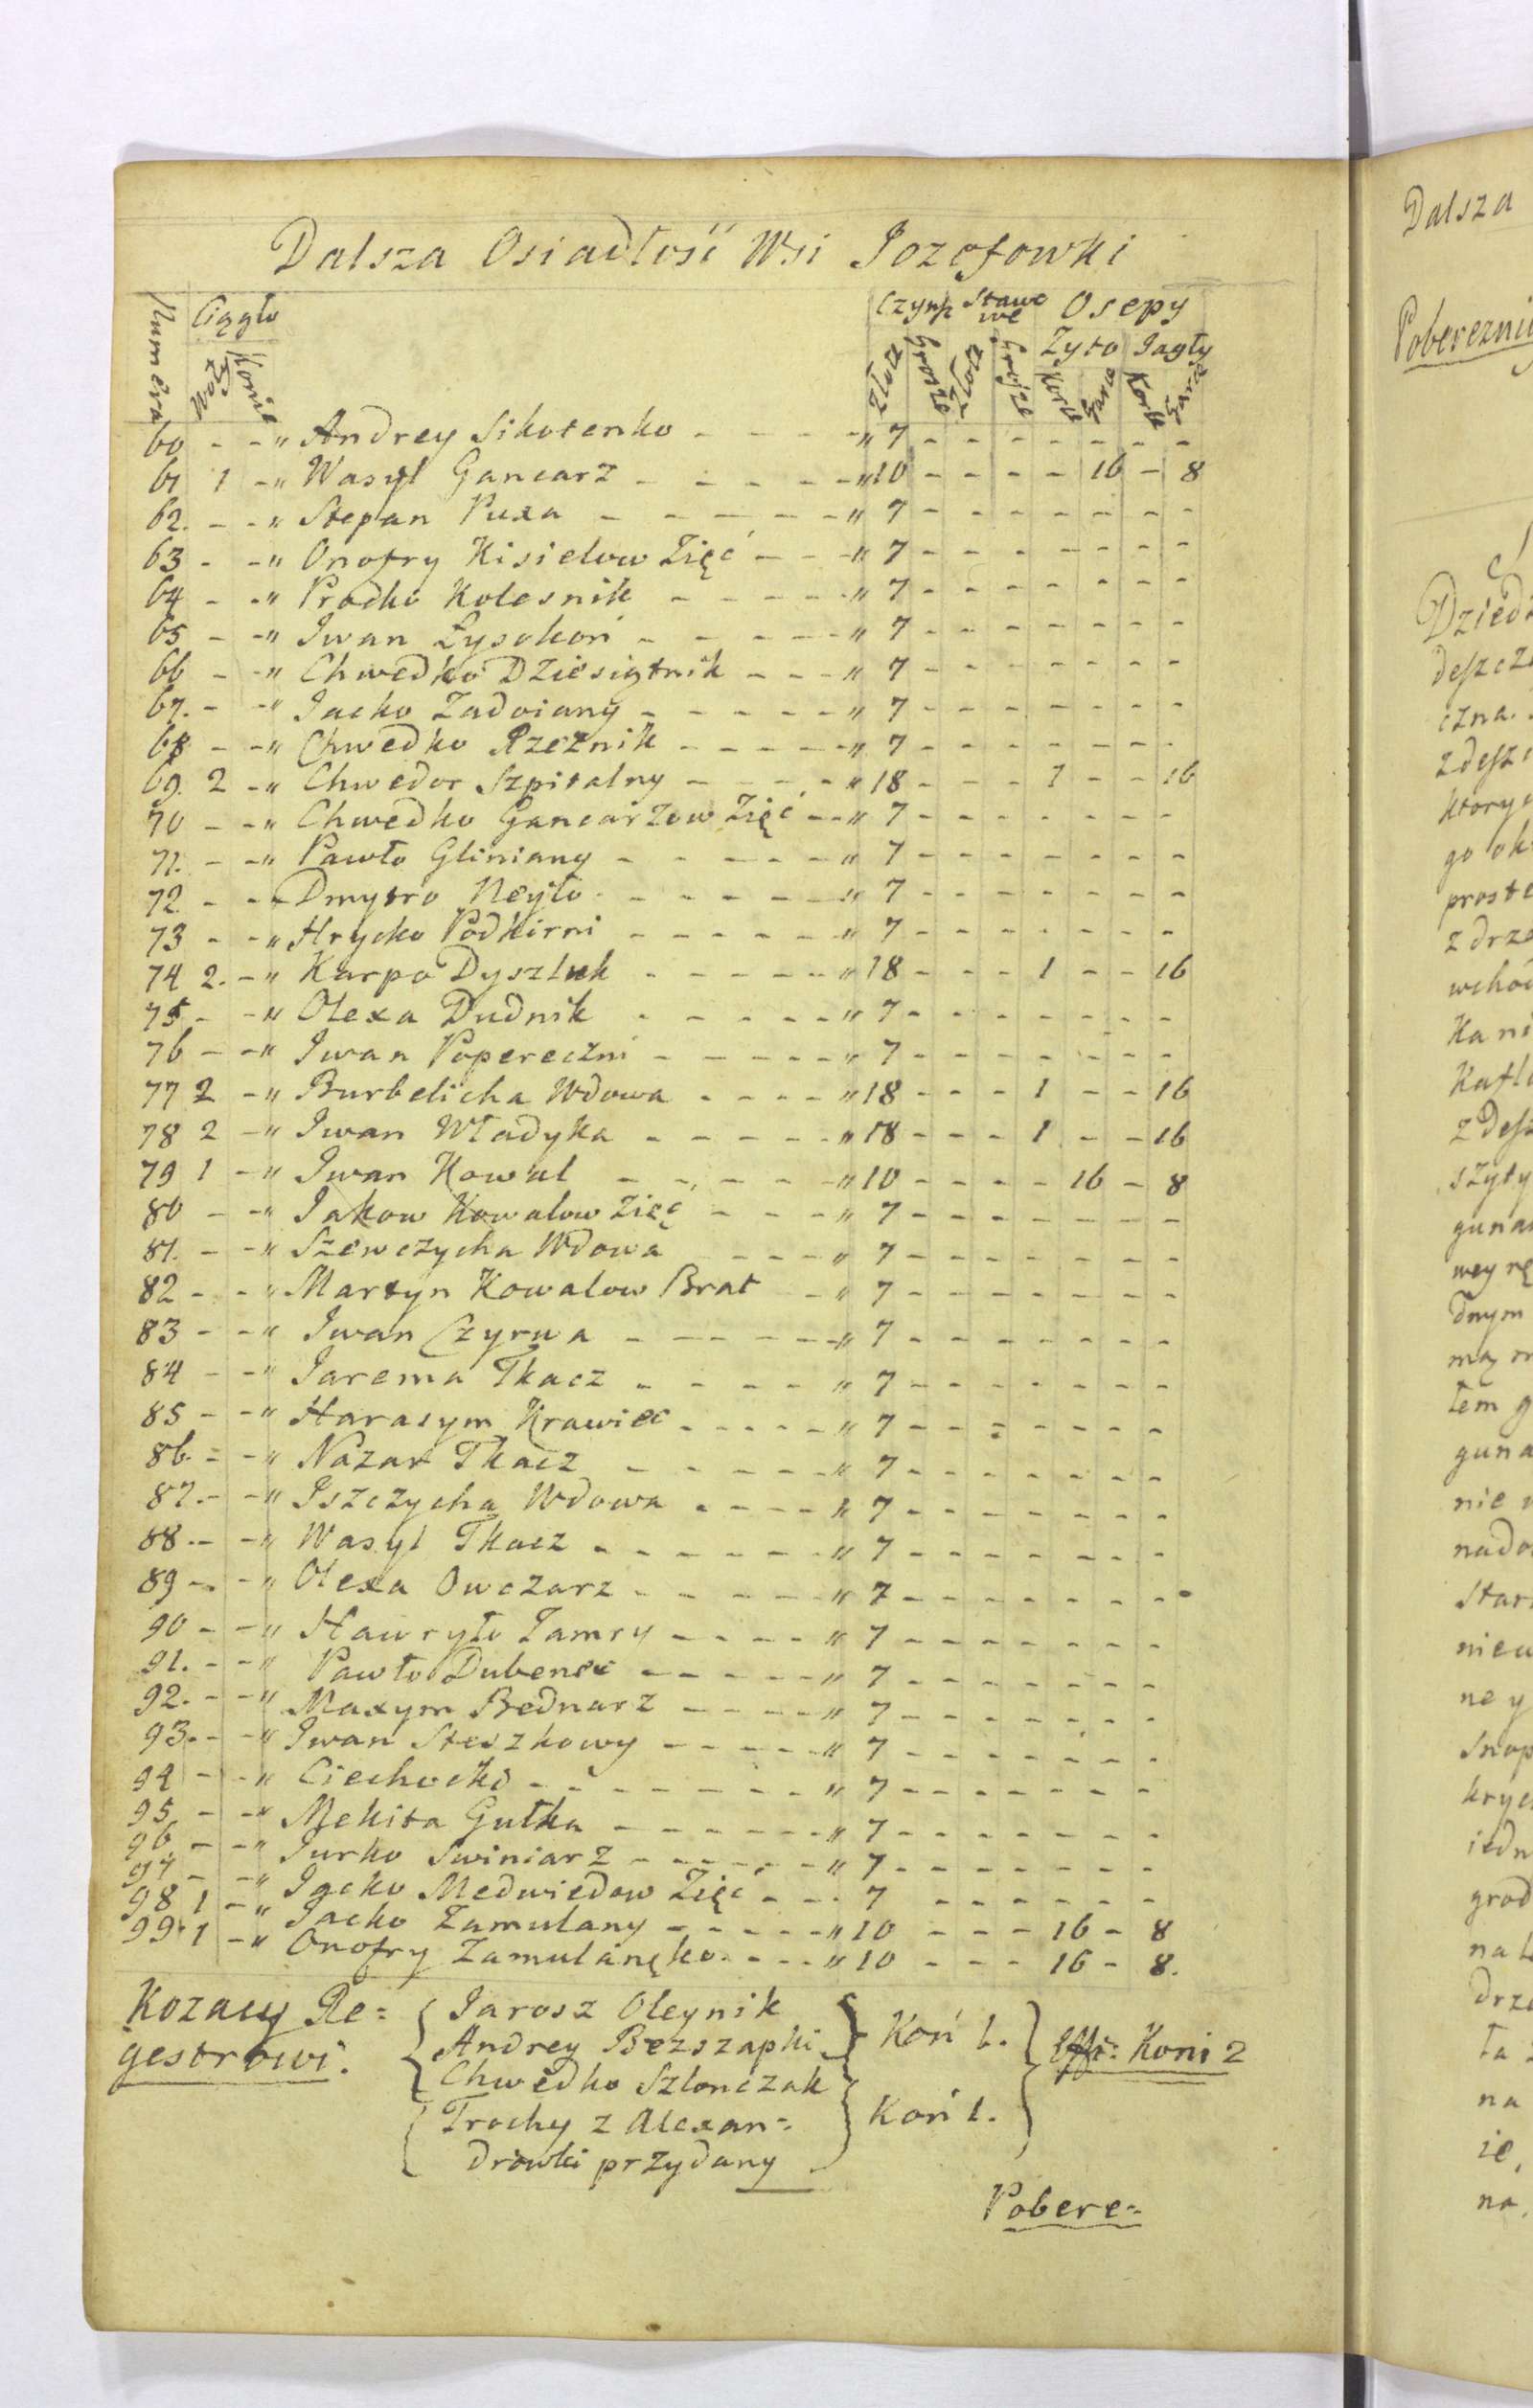 Dalsza Osiadłość Wsi Jozefowki
Numera Ciągło Konie Czynsz Stawowe Osepy
Żyto Jagły
Złote Grosze Złote Grosze Korce Garce Korce Garce
60 - - " Andrey Sikotenko - - - - " 7 - - - - - - -
61 1 - " Wasyl Gancarz - - - - - " 10 - - - - 16 - 8
62. - - " Stepan Puxa - - - - - " 7 - - - - - - -
63 - - " Onofry Kisielow Zięć - - - " 7 - - - - - - -
64 - - " Prodko Kolesnik - - - - - " 7 - - - - - - -
65 - - " Iwan Łysokoń - - - - - " 7 - - - - - - -
66 - - " Chwedko Dziesiątnik - - - " 7 - - - - - - -
67. - - " Jacko Zadoiany - - - - - " 7 - - - - - - -
68 - - " Chwedko Rzeznik - - - - - " 7 - - - - - - -
69. 2 - " Chwedor Szpitalny - - - - " 18 - - - 1 - - 16
70 - - " Chwedko Gancarzow Zięć - - " 7 - - - - - - -
71. - - " Pawło Gliniany - - - - - " 7 - - - - - - -
72. - - - Dmytro Neyło - - - - - " 7 - - - - - - -
73 - - " Hrycko Podkirni - - - - - " 7 - - - - - - -
74 2. - " Karpo Dyszluk - - - - - " 18 - - - 1 - - 16
75 - - " Olexa Dudnik - - - - - " 7 - - - - - - -
76 - - " Iwan Popereczni - - - - - " 7 - - - - - - -
77 2 - " Burbelicha Wdowa - - - - " 18 - - - 1 - - 16
78 2 - " Iwan Władyka - - - - - " 18 - - - 1 - - 16
79 1 - " Iwan Kowal - - - - - " 10 - - - - 16 - 8
80 - - " Jakow Kowalow Zięć - - - - " 7 - - - - - - -
81. - - " Szewczycha Wdowa - - - - " 7 - - - - - - -
82 - - " Martyn Kowalow Brat - - " 7 - - - - - - -
83 - - " Iwan Czyrwa - - - - - - " 7 - - - - - - -
84 - - " Jarema Tkacz - - - - - " 7 - - - - - - -
85 - - " Harasym Krawiec - - - - - " 7 - - - - - - -
86. - - " Nazar Tkacz - - - - - " 7 - - - - - - -
87. - - " Iszczycha Wdowa - - - - " 7 - - - - - - -
88. - - " Wasyl Tkacz - - - - - - " 7 - - - - - - -
89 - - " Olexa Owczarz - - - - - " 7 - - - - - - -
90 - - " Hawryło Zamry - - - - " 7 - - - - - - -
91. - - " Pawło Dubenec - - - - - " 7 - - - - - - -
92. - - " Maxym Bednarz - - - - " 7 - - - - - - -
93. - - " Iwan Steszkowy - - - - - " 7 - - - - - - -
94 - - " Ciechocki - - - - - - - " 7 - - - - - - -
95 - - " Mekita Gułka - - - - - - " 7 - - - - - - -
96. - - " Jurko Swiniarz - - - - - " 7 - - - - - - -
97 - - " Jacko Medwiedow Zięć - - - 7 - - - - - -
98 1 - " Jacko Zamulany - - - - - " 10 - - - 16 - 8
99. 1 - " Onofry Zamulanęko - - - " 10 - - - 16 - 8.
Kozacy Re=
gestrowi.
Jarosz Oleynik
Andrey Bezszapki
Koń 1.
Chwedko Szlonczak
Trochy z Alexan=
drowki przydany
Koń 1.
Koni 2
Pobere=
Dalsza